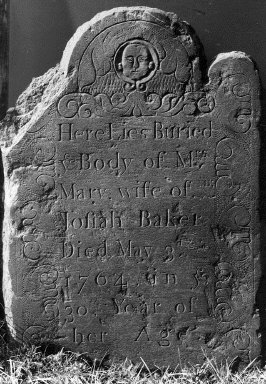 Here Lies Buried
ye Body of Mrs
Mary, wife of
Josiah Baker
Died May 3,
1764, in ye
30, Year of
her Age